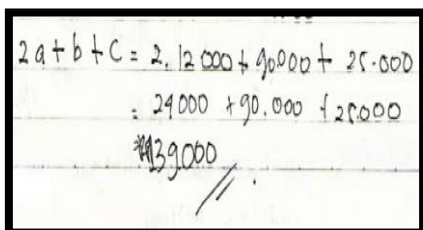 2a + b + c = 2. 12 000 + 90.000 + 25.000
= 24000 + 90.000 + 25.000
= 139.000